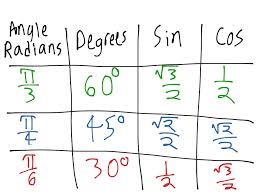 Angle Radians Degrees Sin Cos
π/3 60° √3/2 1/2
π/4 45° √2/2 √2/2
π/6 30° 1/2 √3/2